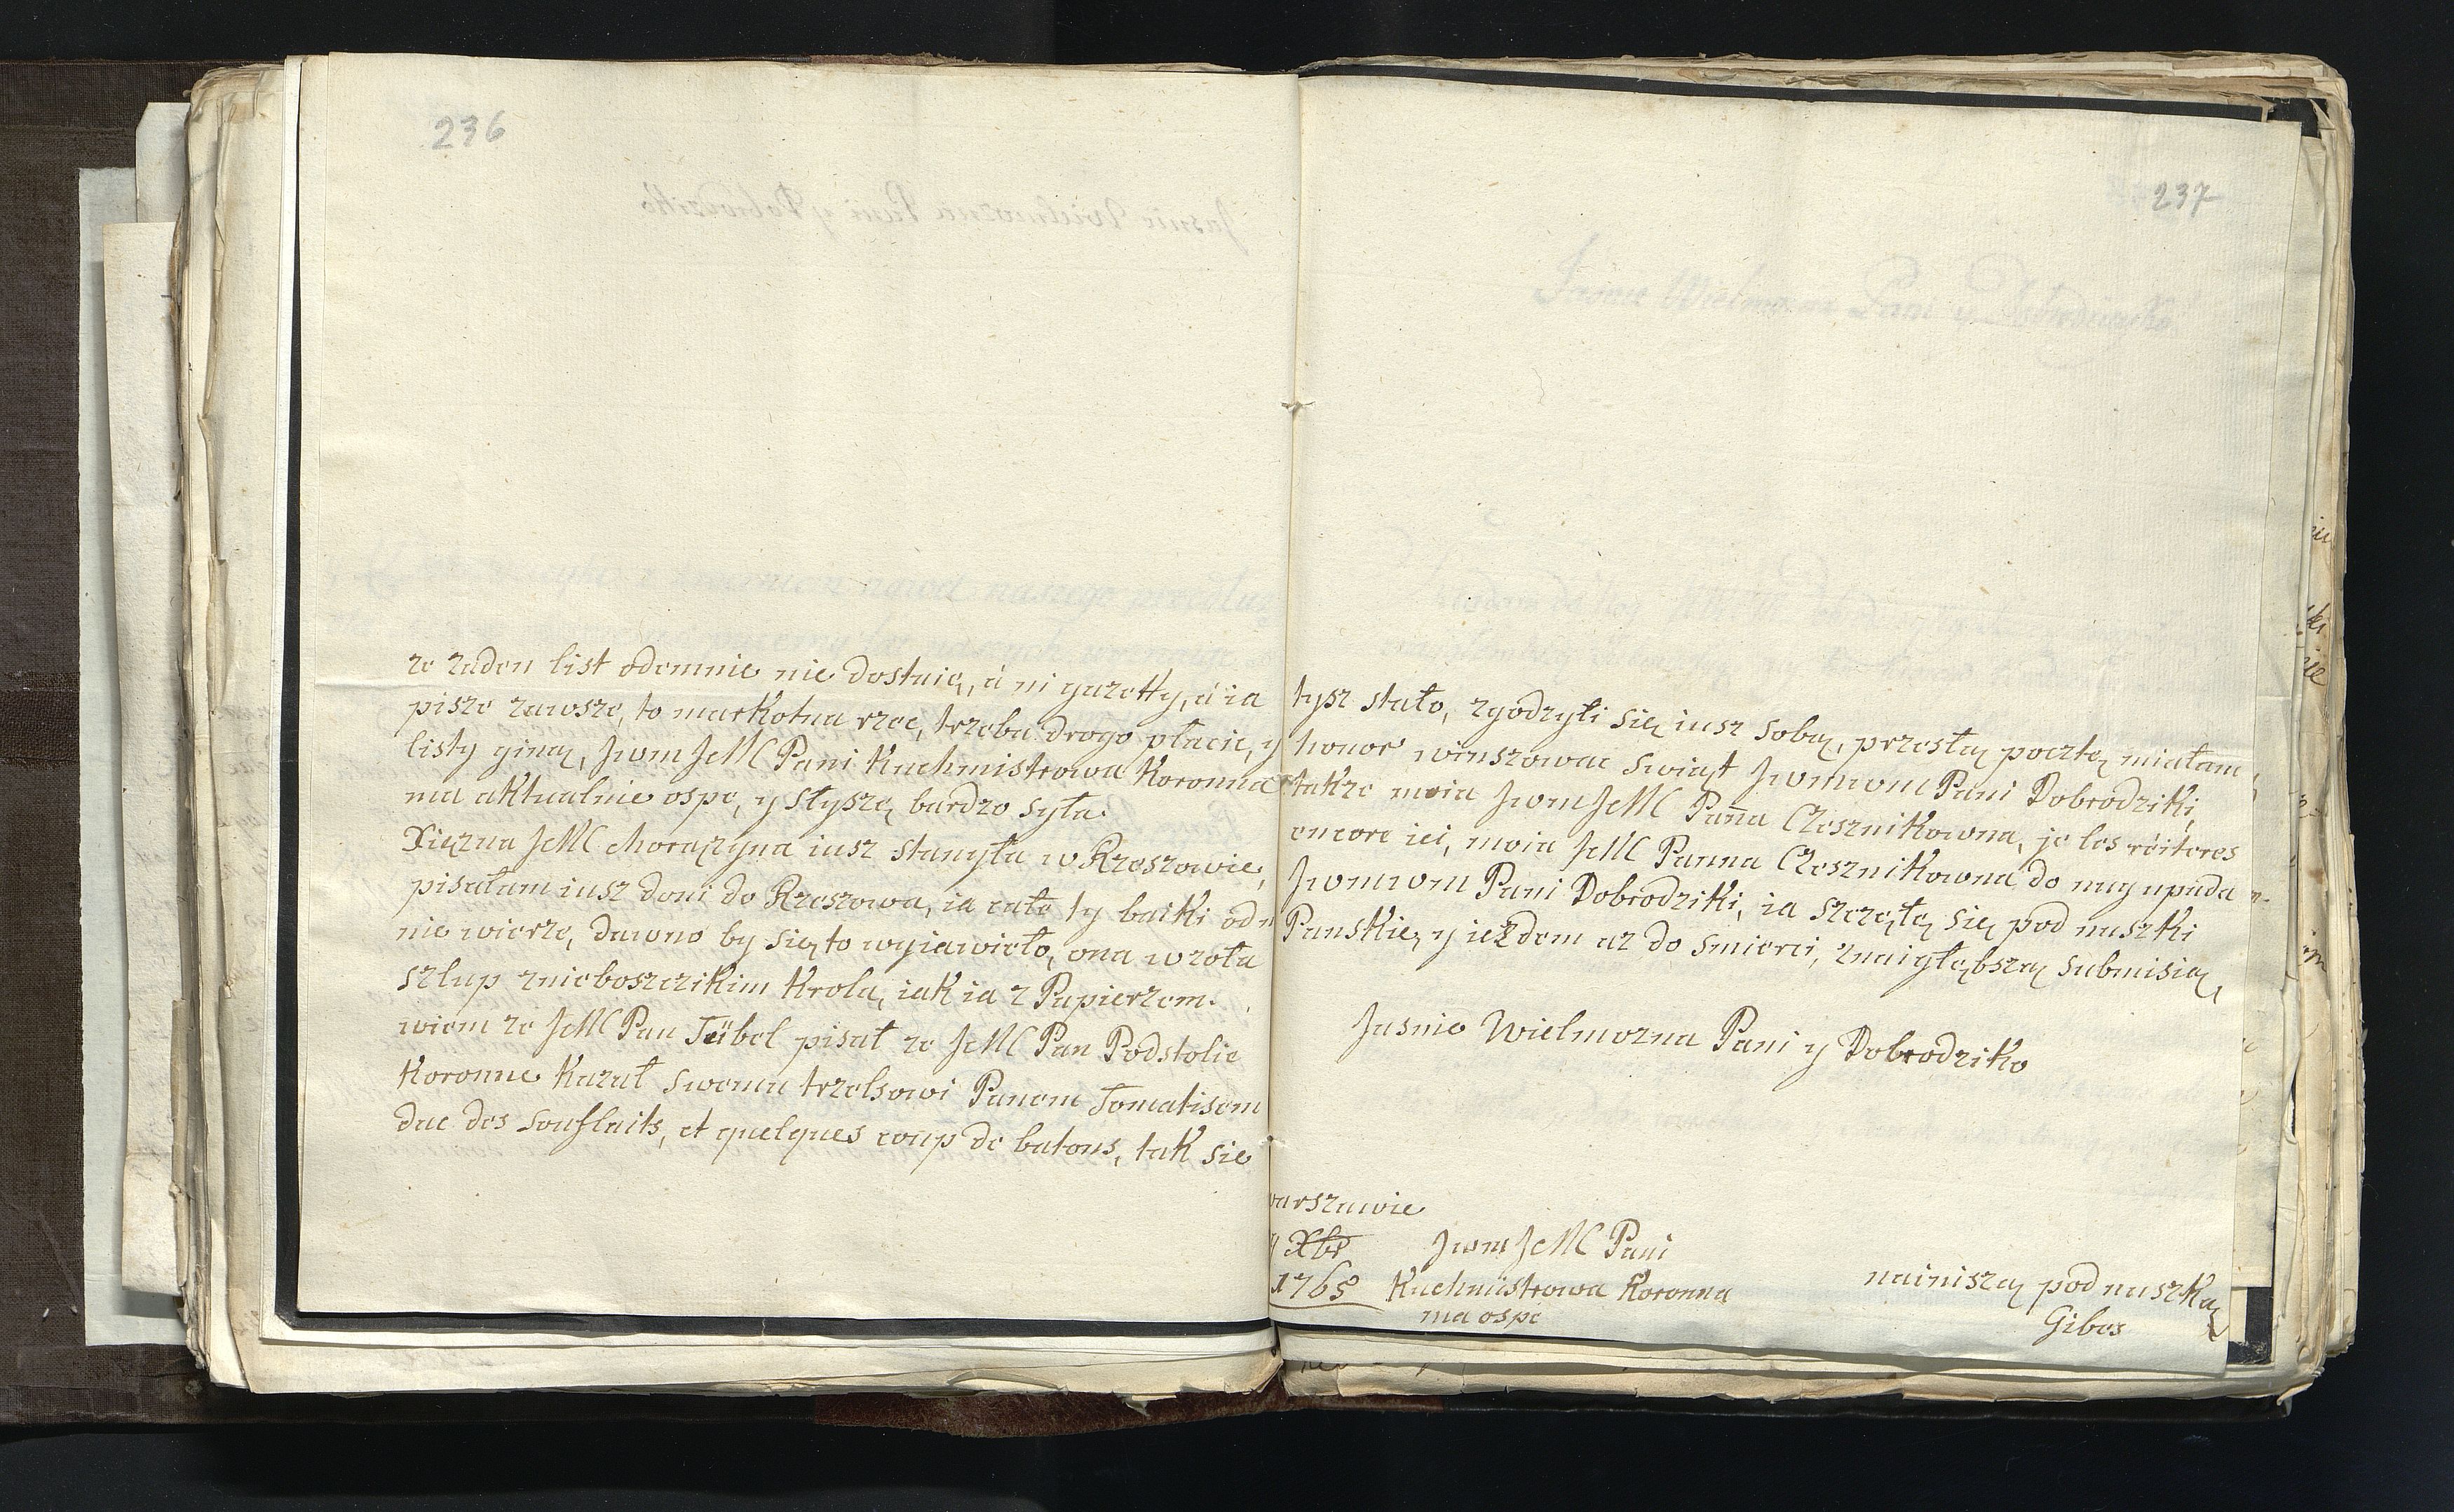 236
ze zaden list odemnie nie dostaię, á ni gazetty, á ia
pisze zawsze, to markotna rzec, trzeba drogo płacic, y
listy giną, Jwm JeMC Pani Kuchmistrowa Koronna
ma aktualnie ospe, y słyszę bardzo syła.
Xięzna JeMC Morązyna iusz stanyła w Rzeszowie,
pisałam iusz doni do Rzeszowa, ia cało ty baiki odn
nie wierze, dawno by się to wyiawieło, ona wzoła
szlup znieboszczikim Krola, iak ia z Papierzem.
wiem ze JeMC Pan Teübel pisał ze JeMC Pan Podstolie
Koronne Kazał swemu trzelsowi Panem Tomatisem
dac des souflaits, et quelques coup de batons, tak sie
237
tysz stało, zgodzyli się iusz sobą, przesłą pocztę miałam
honor winszowac swiąt Jwmwm Pani Dobrodziki,
takze moia Jwm JeMC Pana Czesznikowna, je les réiteres
encore ici, moia JeMC Panna Czesznikowna do nug upada
Jwmwm Pani Dobrodziki, ia szczęłę się pod nuszki
Panskie, y ieżdem az do smierci, znaigłębszą submisią,
Jasnie Wielmozna Pani y Dobrodziko
warszawie
Xbr
1765
Jwm JeMC Pani
Kuchmistrowa Koronna
ma ospe
nainiszą podnuszką
Gibes